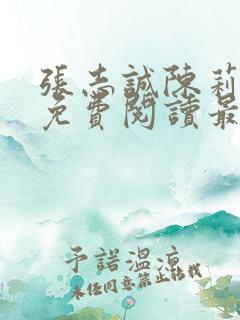 張志誠陳莉
免費閱讀最
予諾溫涼
未經同意禁止轉載